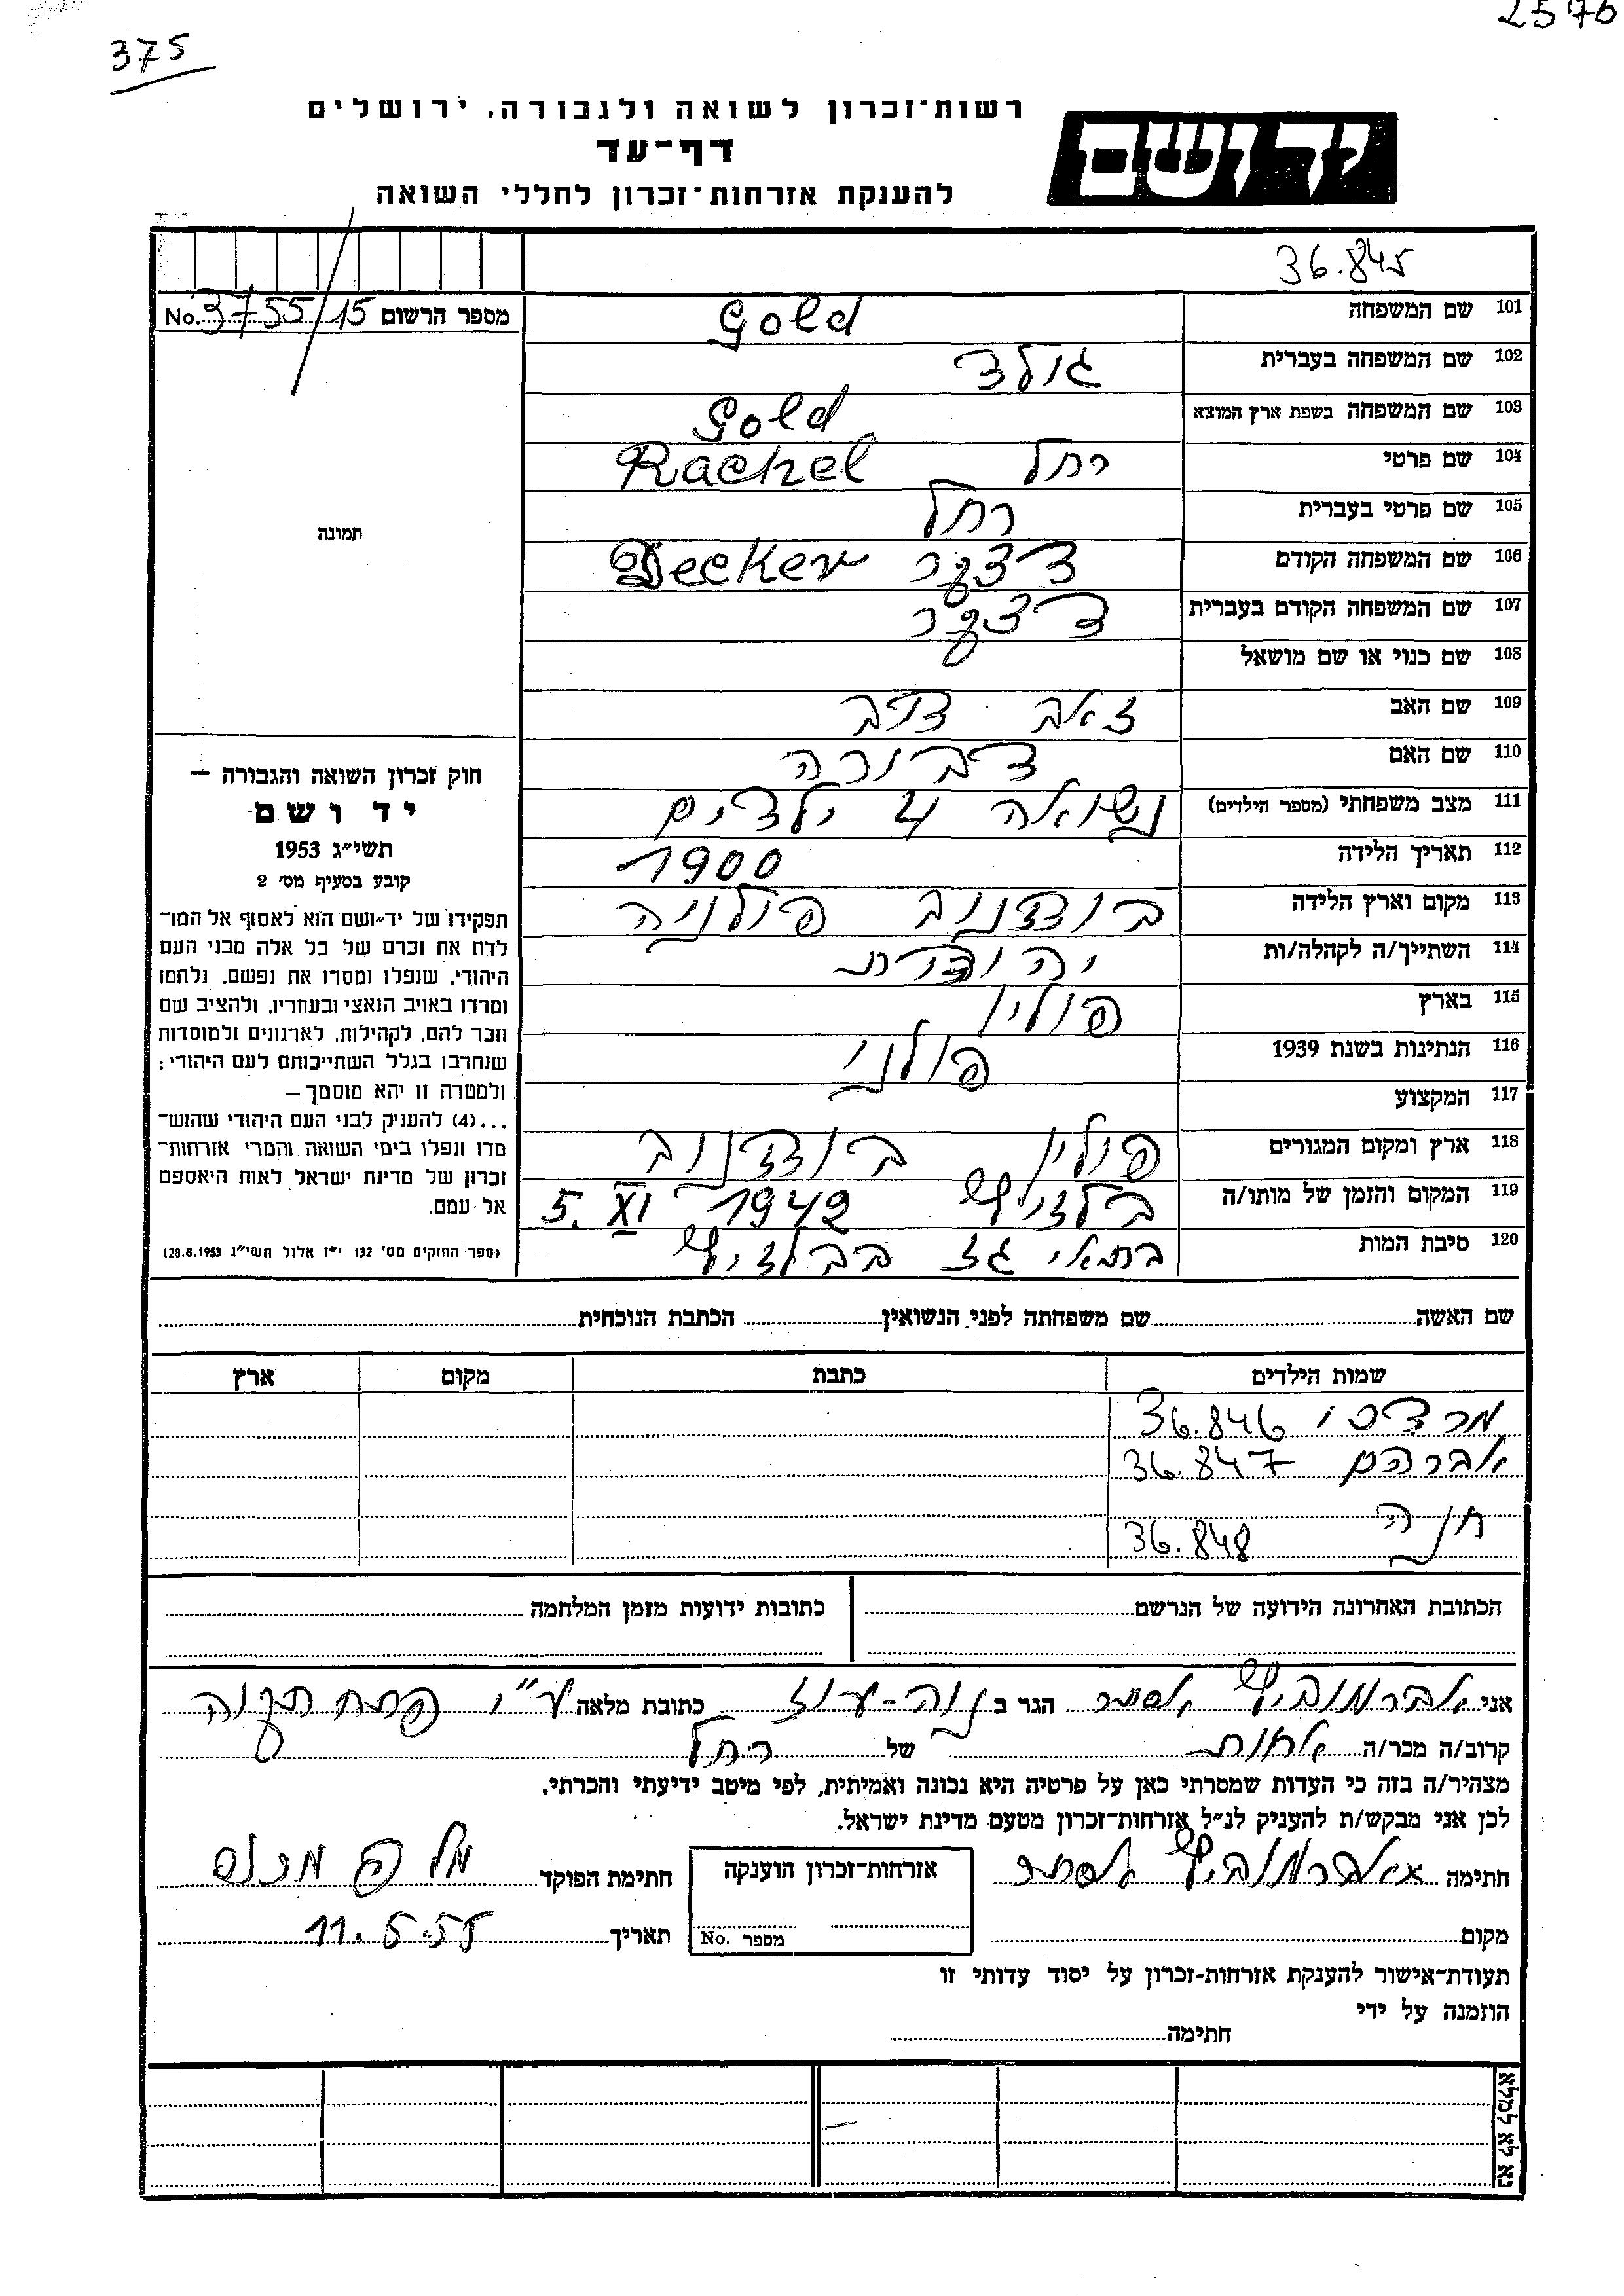 2576
375
רשות־זכרון לשואה ולגבורה, ירושלים
דף־עד
להענקת אזרחות־זכרון לחללי השואה
יד ושם
36.845
מספר הרשום No. 3755/15
101 שם המשפחה Gold
102 שם המשפחה בעברית גולד
103 שם המשפחה בשפת ארץ המוצא Gold
104 שם פרטי רחל Rachel
105 שם פרטי בעברית רחל
106 שם המשפחה הקודם דצקר Decker
107 שם המשפחה הקודם בעברית דצקר
108 שם כנוי או שם מושאל
109 שם האב זאב דוב
110 שם האם דבורה
111 מצב משפחתי (מספר הילדים) נשואה 4 ילדים
112 תאריך הלידה 1900
113 מקום וארץ הלידה בוצנוב פולניה
114 השתייך/ה לקהלה/ות יהודית
115 בארץ פולין
116 הנתינות בשנת 1939 פולני
117 המקצוע
118 ארץ ומקום המגורים פולין בוצנוב
119 המקום והזמן של מותו/ה בלזיץ 1942 5. XI
120 סיבת המות בתאי גז בבלזיץ
תמונה
חוק זכרון השואה והגבורה –
יד ושם
תשי״ג 1953
קובע בסעיף מס׳ 2
תפקידו של יד־ושם הוא לאסוף אל המו־
לדת את זכרם של כל אלה מבני העם
היהודי, שנפלו ומסרו את נפשם, נלחמו
ומרדו באויב הנאצי ובעוזריו, ולהציב שם
וזכר להם, לקהילות, לארגונים ולמוסדות
שנחרבו בגלל השתייכותם לעם היהודי:
ולמטרה זו יהא מוסמך –
...(4) להעניק לבני העם היהודי שהוש־
מדו ונפלו בימי השואה והמרי אזרחות־
זכרון של מדינת ישראל לאות היאספם
אל עמם.
(ספר החוקים מס׳ 132 י״ז אלול תשי״ג 28.8.1953)
שם האשה שם משפחתה לפני הנשואין הכתבת הנוכחית
שמות הילדים כתבת מקום ארץ
מרדכי 36.846
אברהם 36.847
חנה 36.848
הכתובת האחרונה הידועה של הנרשם כתובות ידועות מזמן המלחמה
אני אברמוביץ אסתר הגר ב נוה־עוז כתובת מלאה ע"י פתח תקוה
קרוב/ה מכר/ה אחות של רחל
מצהיר/ה בזה כי העדות שמסרתי כאן על פרטיה היא נכונה ואמיתית, לפי מיטב ידיעתי והכרתי.
לכן אני מבקש/ת להעניק לנ״ל אזרחות־זכרון מטעם מדינת ישראל.
חתימה אברמוביץ אסתר אזרחות־זכרון הוענקה חתימת הפוקד
מקום מספר No. תאריך 11.5.55
תעודת־אישור להענקת אזרחות־זכרון על יסוד עדותי זו
הוזמנה על ידי
חתימה
נא לא למלא